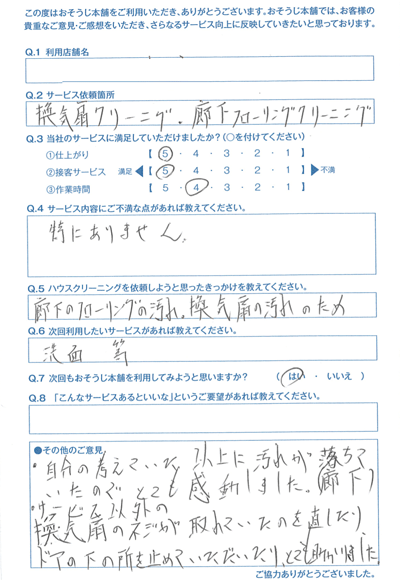 この度はおそうじ本舗をご利用いただき、ありがとうございます。おそうじ本舗では、お客様の
貴重なご意見・ご感想をいただき、さらなるサービス向上に反映していきたいと思っております。
Q.1 利用店舗名
Q.2 サービス依頼箇所
換気扇クリーニング、廊下フローリングクリーニング
Q.3 当社のサービスに満足していただけましたか?(○を付けてください)
①仕上がり 【 5 ・ 4 ・ 3 ・ 2 ・ 1 】
②接客サービス 満足 ◀【 5 ・ 4 ・ 3 ・ 2 ・ 1 】▶ 不満
③作業時間 【 5 ・ 4 ・ 3 ・ 2 ・ 1 】
Q.4 サービス内容にご不満な点があれば教えてください。
特にありません。
Q.5 ハウスクリーニングを依頼しようと思ったきっかけを教えてください。
廊下のフローリングの汚れ。換気扇の汚れのため
Q.6 次回利用したいサービスがあれば教えてください。
洗面 等
Q.7 次回もおそうじ本舗を利用してみようと思いますか? ( はい ・ いいえ )
Q.8 「こんなサービスあるといいな」というご要望があれば教えてください。
●その他のご意見
・自分の考えていた以上に汚れが落ちて
いたのでとても感動しました。(廊下)
・サービス以外の
換気扇のネジが取れていたのを直したり
ドアの下の所を止めていただいたり、とても助かりました
ご協力ありがとうございました。